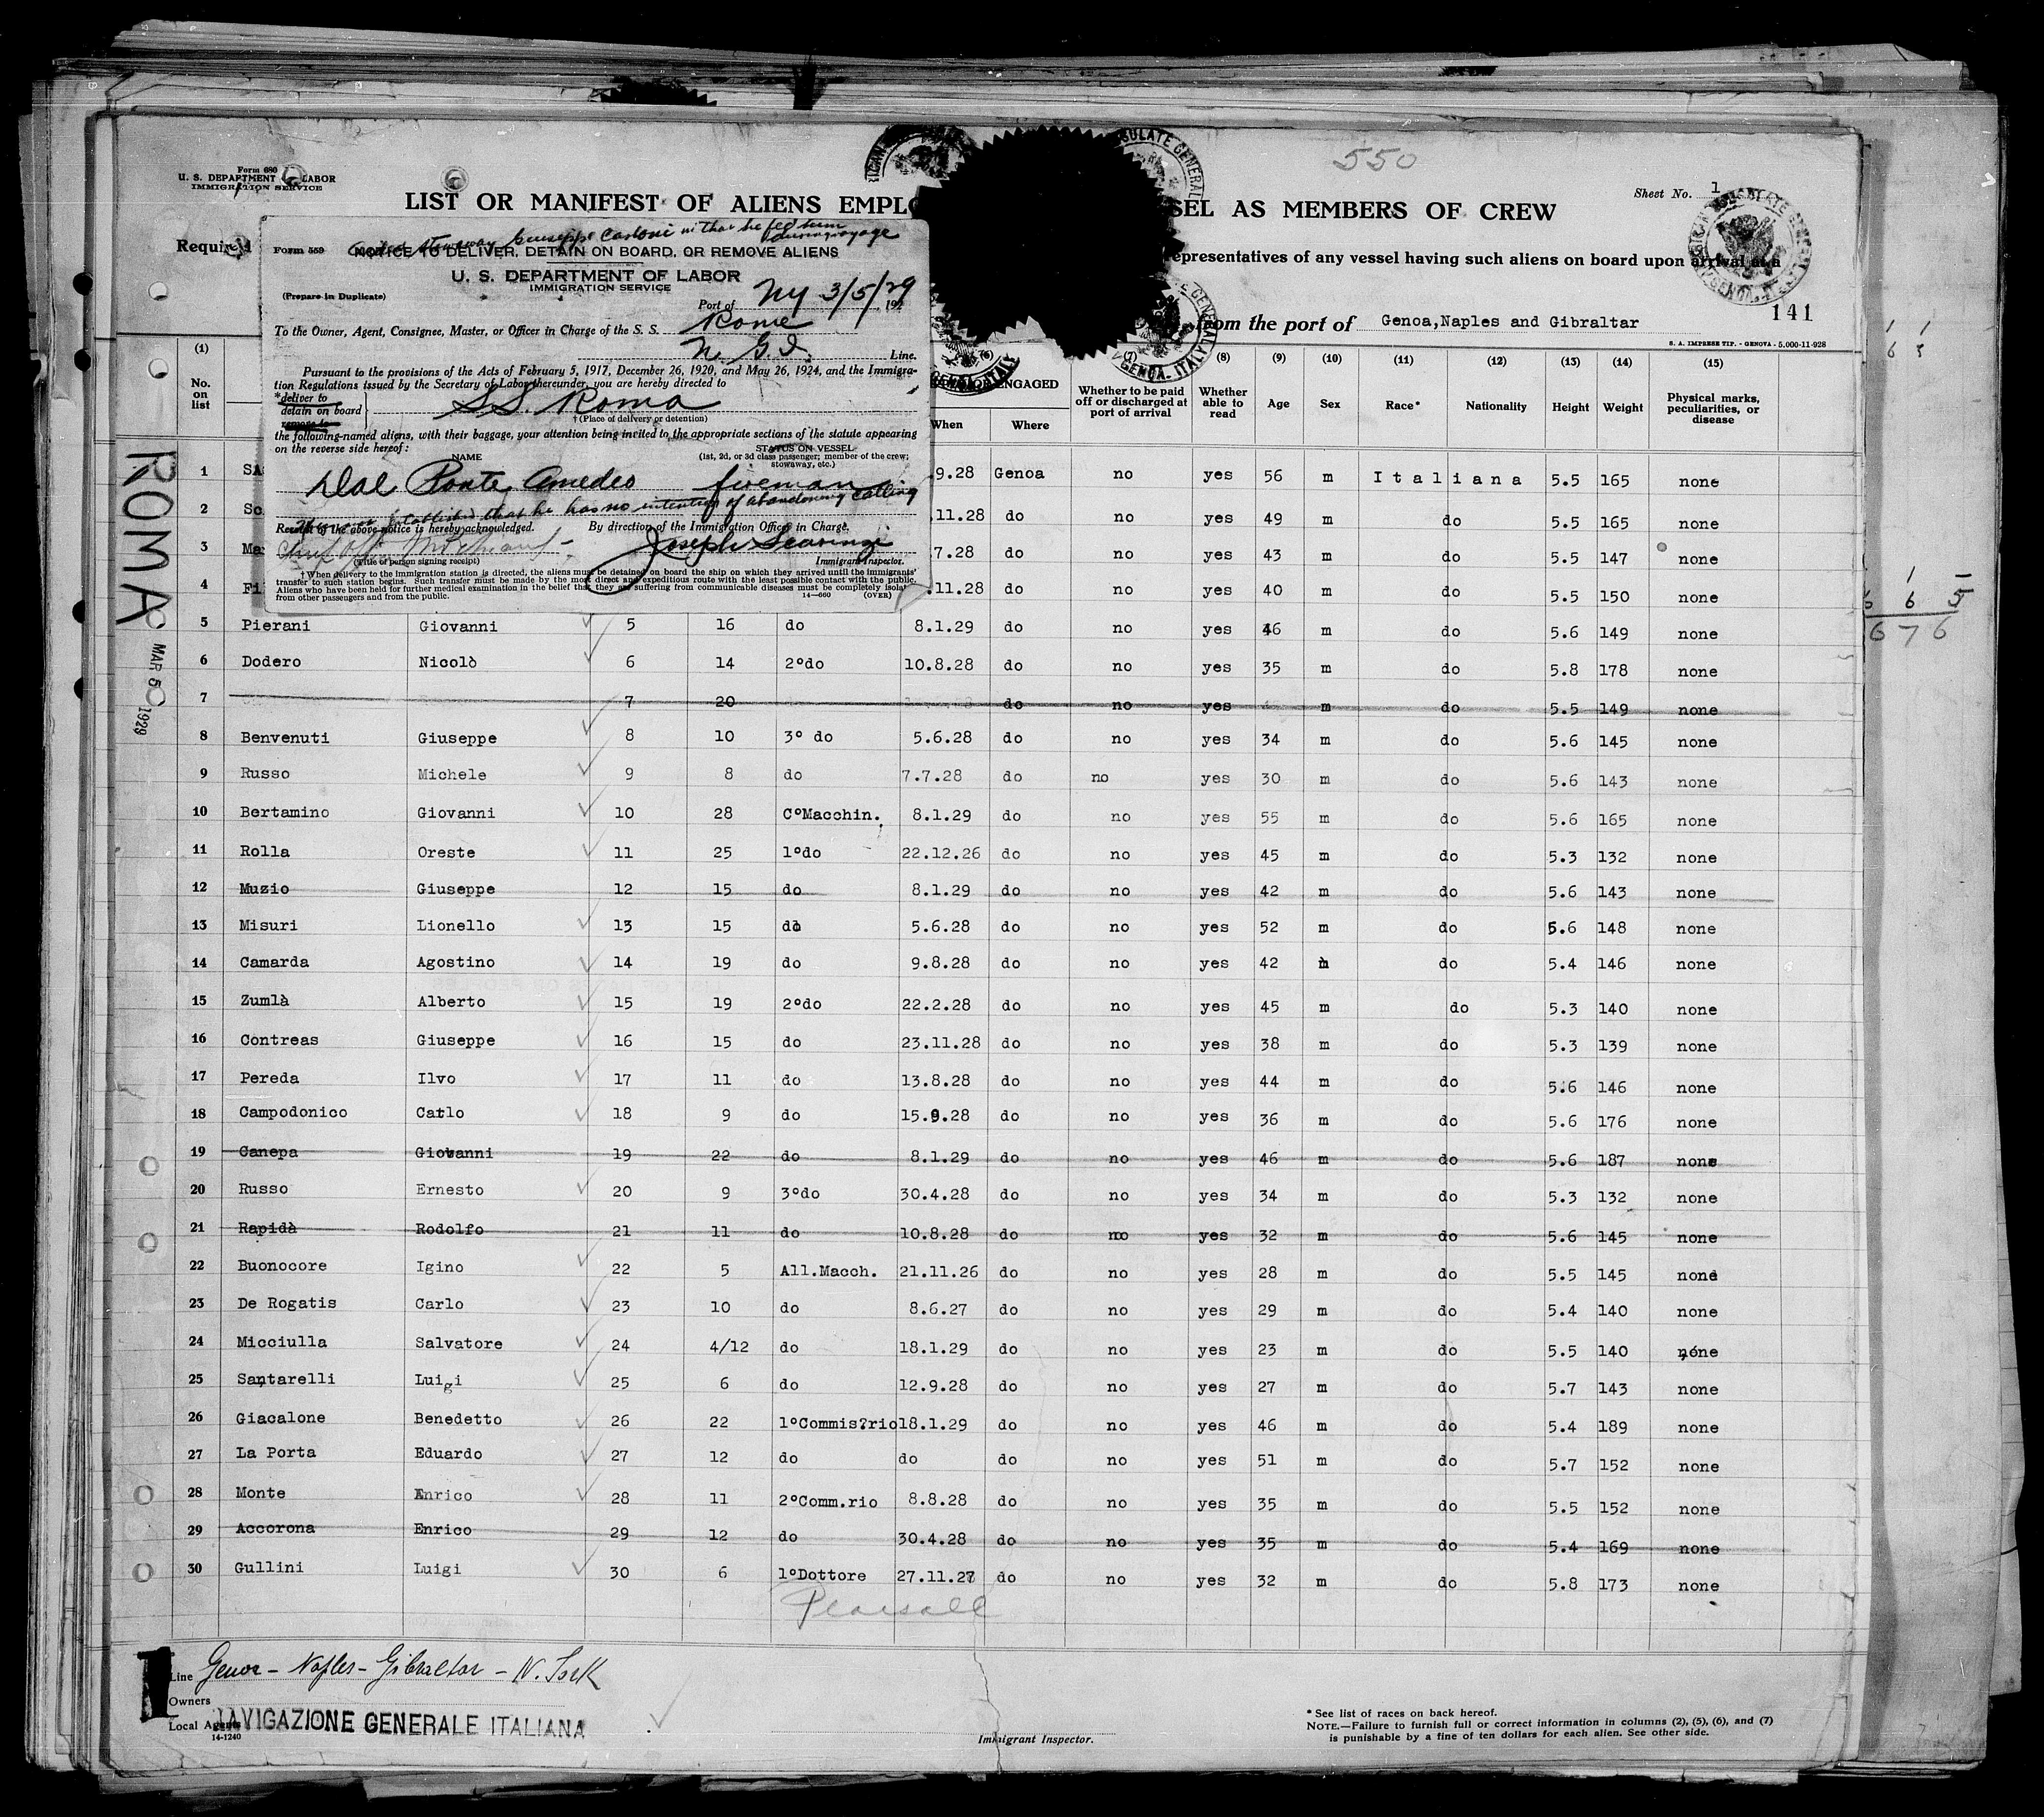 550
Form 680
U. S. DEPARTMENT LABOR
IMMIGRATION SERVICE
Sheet No. 1
LIST OR MANIFEST OF ALIENS EMPLO SEL AS MEMBERS OF CREW
Required
epresentatives of any vessel having such aliens on board upon arrival at a
from the port of Genoa,Naples and Gibraltar
141
S. A. IMPRESE TIP. - GENOVA - 5.000-11-928
stowaway Giuseppe Carloni in that he fed him
during voyage
Form 559
NOTICE TO DELIVER, DETAIN ON BOARD, OR REMOVE ALIENS
U. S. DEPARTMENT OF LABOR
IMMIGRATION SERVICE
(Prepare in Duplicate)
Port of NY 3/5/29 192
To the Owner, Agent, Consignee, Master, or Officer in Charge of the S. S. Rome
N. G. I. Line.
Pursuant to the provisions of the Acts of February 5, 1917, December 26, 1920, and May 26, 1924, and the Immigra-
tion Regulations issued by the Secretary of Labor thereunder, you are hereby directed to
*deliver to
detain on board
remove to
SS. Roma
† (Place of delivery or detention)
the following-named aliens, with their baggage, your attention being invited to the appropriate sections of the statute appearing
on the reverse side hereof:
NAME
STATUS ON VESSEL
(1st, 2d, or 3d class passenger; member of the crew;
stowaway, etc.)
Dal Ponte, Amedeo fireman
established that he has no intention of abandoning calling
Receipt of the above notice is hereby acknowledged. By direction of the Immigration Officer in Charge.
Joseph Scaringi
(Title of person signing receipt) Immigrant Inspector.
† When delivery to the immigration station is directed, the aliens must be detained on board the ship on which they arrived until the immigrants'
transfer to such station begins. Such transfer must be made by the most direct and expeditious route with the least possible contact with the public.
Aliens who have been held for further medical examination in the belief that they are suffering from communicable diseases must be completely isolat
from other passengers and from the public. 14—660 (OVER)
(1) (6) (7) (8) (9) (10) (11) (12) (13) (14) (15)
No. on list
ENGAGED
When Where
Whether to be paid off or discharged at port of arrival
Whether able to read
Age Sex Race* Nationality Height Weight
Physical marks, peculiarities, or disease
ROMA
MAR 5 1929
1 .9.28 Genoa no yes 56 m Italiana 5.5 165 none
2 So .11.28 do no yes 49 m do 5.5 165 none
3 Ma 7.28 do no yes 43 m do 5.5 147 none
4 Fi .11.28 do no yes 40 m do 5.5 150 none
5 Pierani Giovanni 5 16 do 8.1.29 do no yes 46 m do 5.6 149 none
6 Dodero Nicolò 6 14 2°do 10.8.28 do no yes 35 m do 5.8 178 none
7 7 20 do no yes m do 5.5 149 none
8 Benvenuti Giuseppe 8 10 3° do 5.6.28 do no yes 34 m do 5.6 145 none
9 Russo Michele 9 8 do 7.7.28 do no yes 30 m do 5.6 143 none
10 Bertamino Giovanni 10 28 C°Macchin. 8.1.29 do no yes 55 m do 5.6 165 none
11 Rolla Oreste 11 25 1°do 22.12.26 do no yes 45 m do 5.3 132 none
12 Muzio Giuseppe 12 15 do 8.1.29 do no yes 42 m do 5.6 143 none
13 Misuri Lionello 13 15 do 5.6.28 do no yes 52 m do 5.6 148 none
14 Camarda Agostino 14 19 do 9.8.28 do no yes 42 m do 5.4 146 none
15 Zumlà Alberto 15 19 2°do 22.2.28 do no yes 45 m do 5.3 140 none
16 Contreas Giuseppe 16 15 do 23.11.28 do no yes 38 m do 5.3 139 none
17 Pereda Ilvo 17 11 do 13.8.28 do no yes 44 m do 5.6 146 none
18 Campodonico Carlo 18 9 do 15.9.28 do no yes 36 m do 5.6 176 none
19 Canepa Giovanni 19 22 do 8.1.29 do no yes 46 m do 5.6 187 none
20 Russo Ernesto 20 9 3°do 30.4.28 do no yes 34 m do 5.3 132 none
21 Rapidà Rodolfo 21 11 do 10.8.28 do no yes 32 m do 5.6 145 none
22 Buonocore Igino 22 5 All.Macch. 21.11.26 do no yes 28 m do 5.5 145 none
23 De Rogatis Carlo 23 10 do 8.6.27 do no yes 29 m do 5.4 140 none
24 Micciulla Salvatore 24 4/12 do 18.1.29 do no yes 23 m do 5.5 140 none
25 Santarelli Luigi 25 6 do 12.9.28 do no yes 27 m do 5.7 143 none
26 Giacalone Benedetto 26 22 1°Commis?rio 18.1.29 do no yes 46 m do 5.4 189 none
27 La Porta Eduardo 27 12 do do do no yes 51 m do 5.7 152 none
28 Monte Enrico 28 11 2°Comm.rio 8.8.28 do no yes 35 m do 5.5 152 none
29 Accorona Enrico 29 12 do 30.4.28 do no yes 35 m do 5.4 169 none
30 Gullini Luigi 30 6 1°Dottore 27.11.27 do no yes 32 m do 5.8 173 none
Pearsall
Line Genoa - Naples - Gibraltar - N. York
Owners
Local Agents NAVIGAZIONE GENERALE ITALIANA
14-1240
Immigrant Inspector.
* See list of races on back hereof.
NOTE.—Failure to furnish full or correct information in columns (2), (5), (6), and (7)
is punishable by a fine of ten dollars for each alien. See other side.
6 7 6